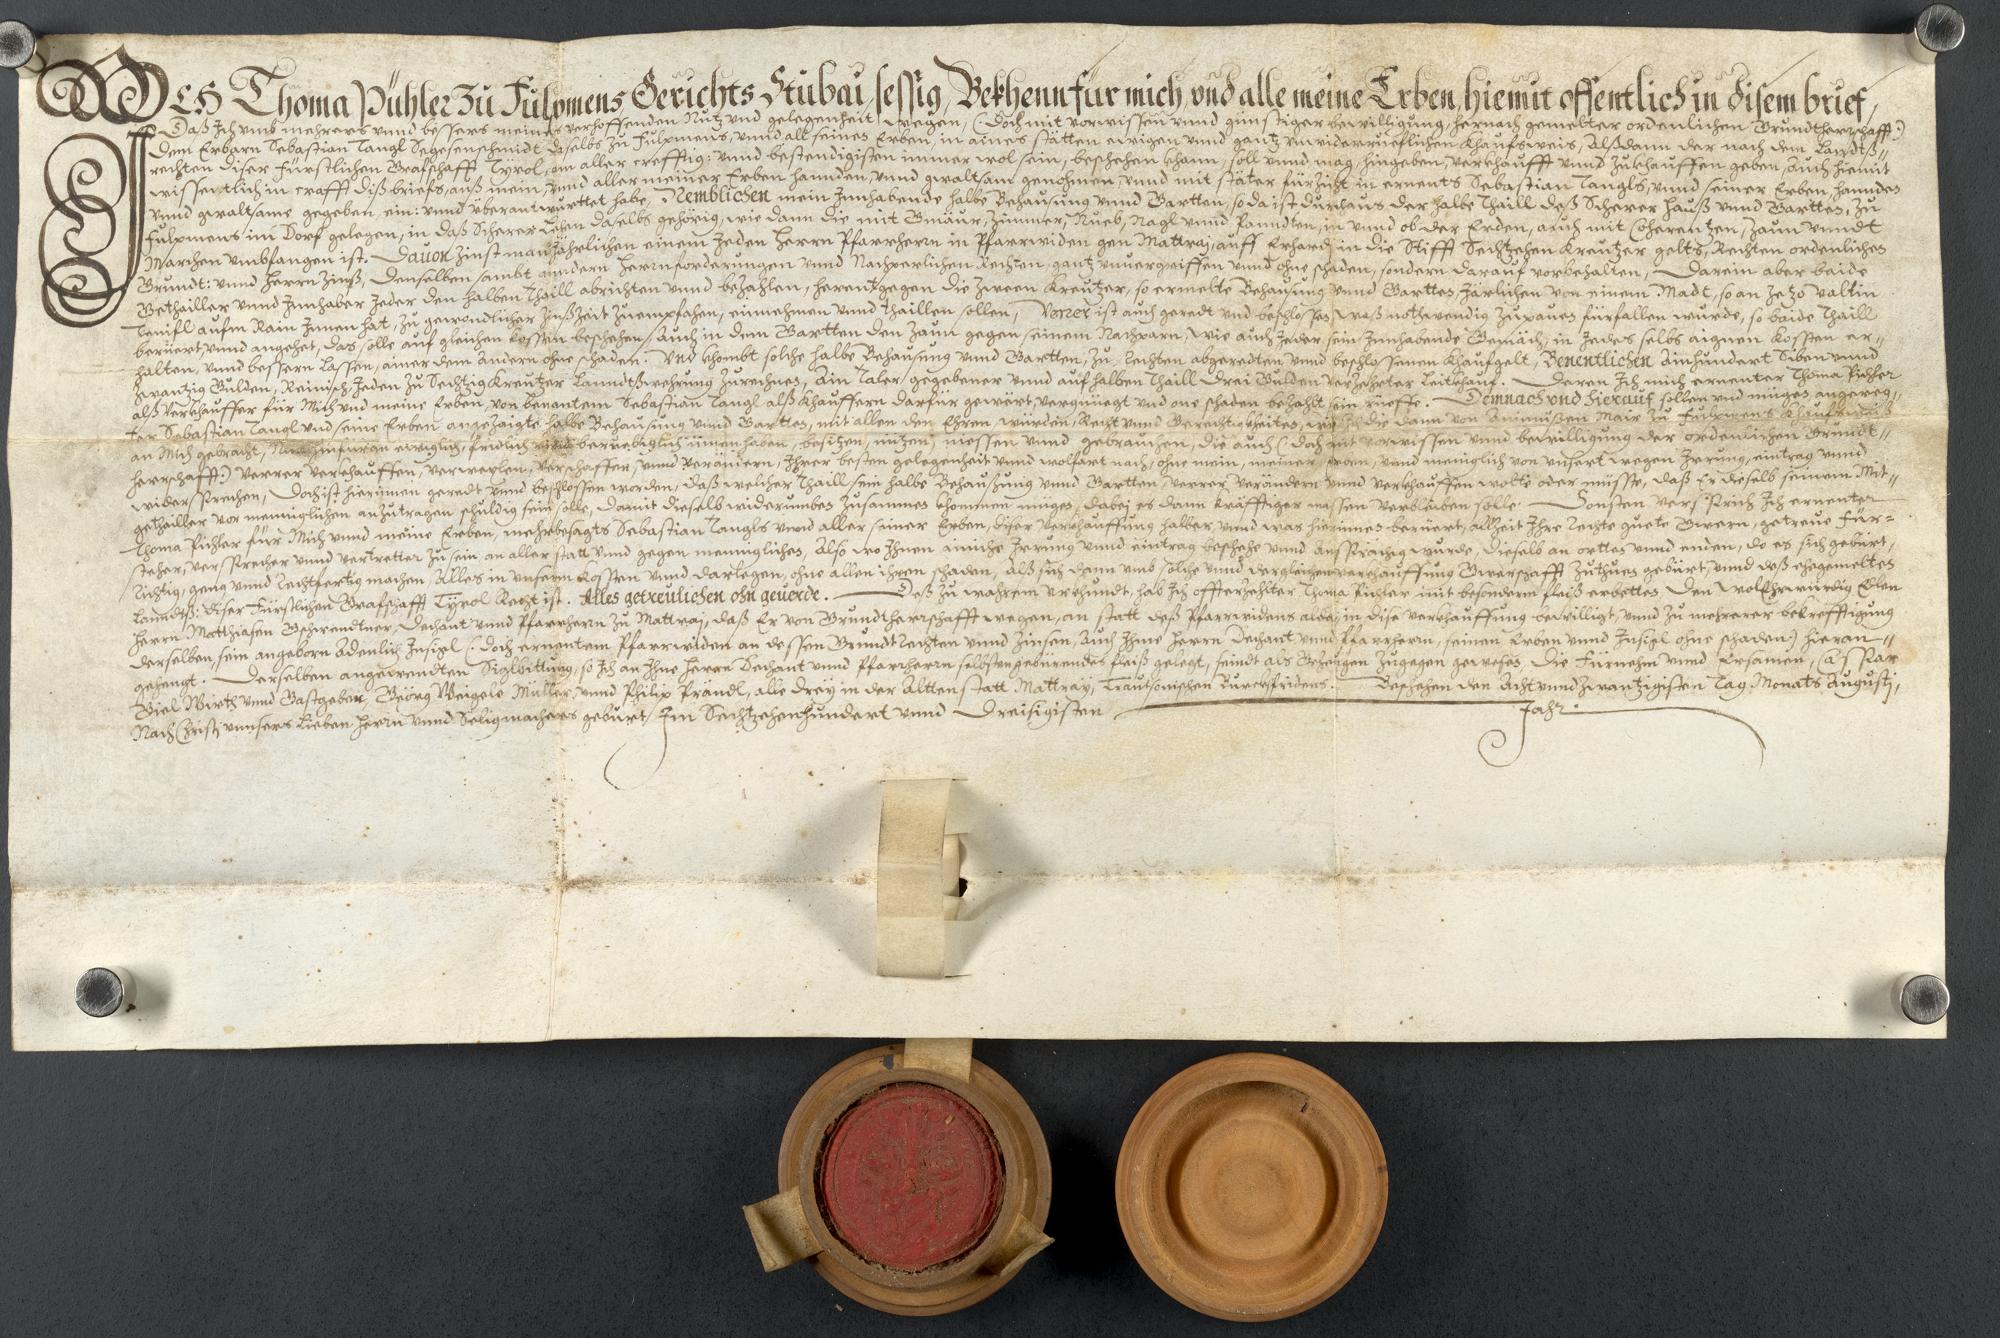 Ich Thoma Pühler zu Fulpmens Gerichts Stubai, sessig, Bekhenn für mich, und alle meine Erben, hiemit offentlich in disem brief,
Daß Ich umb mehrers unnd bessers meines verhoffenden Nutz und gelegenheit wegen, (:doch mit vorwissen unnd günstiger bewilligung, hernach gemelter ordenlichen Grundtherrschafft:)
dem Erbarn Sebastian Tangl Segesenschmidt daselbs zu Fulpmens, unnd all seinen Erben, in aines stätten ewigen unnd gantz unwiderrueflichen Khaufsweis, Alß dann der nach dem Landtß-
rechten diser Fürstlichen Grafschafft Tyrol, am aller crefftig: unnd bestendigisten immer wol sein, beschehen khann, soll unnd mag, hingeben, verkhaufft unnd zukhauffen geben, Auch hiemit
wissentlich in crafft diß briefs, auß mein, unnd aller meiner Erben hannden, unnd gwaltsam genohmen, unnd mit stäter fürzicht in ernents Sebastian Tangls, unnd seiner Erben, hannden
unnd gewaltsame gegeben, ein: unnd überantwurttet habe, Nemblichen mein Innhabende halbe Behausung unnd Gartten, so da ist durchaus der halbe Thaill deß Scherer Hauß unnd Gartten, zu
Fulpmens im Dorf gelegen, in daß Scherer Lehen daselbs gehörig, wie dann die mit Gmäur, Zimmer, Nueb, Nagl unnd Panndten, in unnd ob der Erden, auch mit Coherentzen, Zaun unndt
Marchen umbfangen ist. Davon zinst man Jährlichen einem jeden Herrn Pfarrherrn in Pfarrwiden gen Mattraj, auff Erhardj in die Stifft Sechtzehen Kreutzer gelts, Rechten ordenlichen
Grundt: unnd Herrn Zinß, Denselben sambt anndern Herrnforderungen unnd Nachperlichen Rechten, gantz unvergriffen unnd ohne schaden, sondern darauf vorbehalten, Darein aber baide
Gethailler unnd Innhaber Jeder den halben Thaill abrichten unnd bezahlen, herentgegen die zween Kreutzer, so ermelte Behausung unnd Gartten Järlichen von einem Madt, so an jezo Valtin
Teuifl aufm Rain Innen hat, zu gewondlicher Zinßzeit zuempfahen, einnehmen unnd thaillen sollen, Verrer ist auch geredt und beschlossen, waß nothwendig zupauen fürfallen wurde, so baide Thaill
beruert, unnd angehet, das solle auf gleichen Kosten beschehen, Auch in dem Gartten den Zaun gegen seinem Nachparn, wie auch Jeder sein Innhabende Gemäch, in Jedes selbs aignen Kosten er-
halten, unnd bessern Lassen, ainer dem Andern ohne schaden. Und khombt solche halbe Behausung unnd Gartten, zu rechten abgeredten unnd beschlossenen Khaufgelt, Benentlichen Ainhundert Siben unnd
zwantzig Gulden, Reinisch, Jeden zu Sechtzig Kreutzer Lanndtßwehrung zurechnen, Ain Taler gegebener unnd auf halben Thaill Drei Gulden verzehrter Leitkhauf. Deren Ich mich ernenter Thoma Pichler
alß verkhauffer für Mich und meine Erben, von benantem Sebastian Tangl alß Khauffern darfür gewärt, vergnüegt und one schaden bezahlt sein rüeffe. Demnach und hierauf sollen und mügen angereg-
ter Sebastian Tangl und seine Erben angezaigte halbe Behausung unnd Gartten, mit allen den Ehren, würden, Recht unnd Gerechtigkheiten, wie Ich die dann von Mair zu Fulpmens Khaufsweiß
an Mich gebracht, Nun hinfüran ewiglich, fridlich unnd berueblich innen haben, besitzen, nutzen, niessen unnd gebrauchen, die auch (:doch mit vorwissen unnd bewilligung der ordenlichen Grundt-
herrschafft:) verrer verkhauffen, verwexlen, verschaffen, unnd verändern, Ihrer besten gelegenheit unnd wolfart nach, ohne mein, meiner Erben, unnd meniglich von unsert wegen Irrung, eintrag unnd
widersprechen, Doch ist hierinnen geredt unnd beschlossen worden, daß welcher Thaill sein halbe Behausung unnd Gartten, verrer verändern unnd verkhauffen wolte oder müste, daß Er dieselb seinem Mit-
gethailler vor menniglichen anzutragen schuldig sein solle, damit dieselb widerumben zusammen khommen mügen, dabej es dann kräfftiger massen verbleiben solle. Sonsten versprich Ich ernenter
Thoma Pichler für Mich unnd meine Erben, mehrbesagts Sebastian Tangls unnd aller seiner Erben, diser verkhauffung halber, unnd was hierinnen beruert, allzeit Ihre rechte guete Gwern, getreue Für-
steher, versprecher unnd vertretter zu sein an aller statt unnd gegen menniglichen, Also wo Ihnen ainiche Irrung unnd eintrag beschehe unnd Ansprächig wurde, dieselb an orthen unnd enden, do es sich gebürt,
richtig, geng unnd rechtfertig machen Alles in unserm Kosten unnd darlegen, ohne allen ihren schaden, Alß sich dann umb solche unnd dergleichen verkhauffung Gwerschafft zuthuen gebürt, unnd deß ehegemelten
Lanndtß: diser Fürstlichen Grafschafft Tyrol Recht ist. Alles getreulichen ohn geuerde. Deß zu wahrem Urkhundt, hab Ich offterzehlter Thoma Pichler mit besonderm fleiß erbetten, den wol Ehrwürdig Edlen
Herrn Matthiasen Gschwendtner, Dechant unnd Pfarrherrn zu Mattraj, daß Er von Grundtherrschafft wegen, an statt deß Pfarrwidens alda, in dise verkhauffung bewilligt, und zu mehrerer bekrefftigung
derselben, sein angeborn Adenlich Insigl (:doch ernentem Pfarrwiden an dessen Grundt Rechten unnd Zinsen, Auch Ihme Herrn Dechant unnd Pfarrherrn, seinen Erben unnd Insigl ohne schaden:) hieran-
gehengt. Derselben angeregndten Siglbittung, so Ich an Ihne Herrn Dechant unnd Pfarrherrn selbsten gebürendes fleiß gelegt, seindt als Gezeugen zugegen gewesen, Die Fürnehm unnd Ersamen, Caspar
Biel Wirtt unnd Gastgeber, Georg Weigele Müller, unnd Philip Prändl, alle drey in der Altenstatt Mattray, Trautsonischen Burckfridens. Beschehen den Acht unnd zwantzigisten Tag Monats Augustj,
Nach Christj unnsers Lieben Herrn unnd Seligmachers geburt, Im Sechtzehenhundert unnd Dreisigisten Jahr.